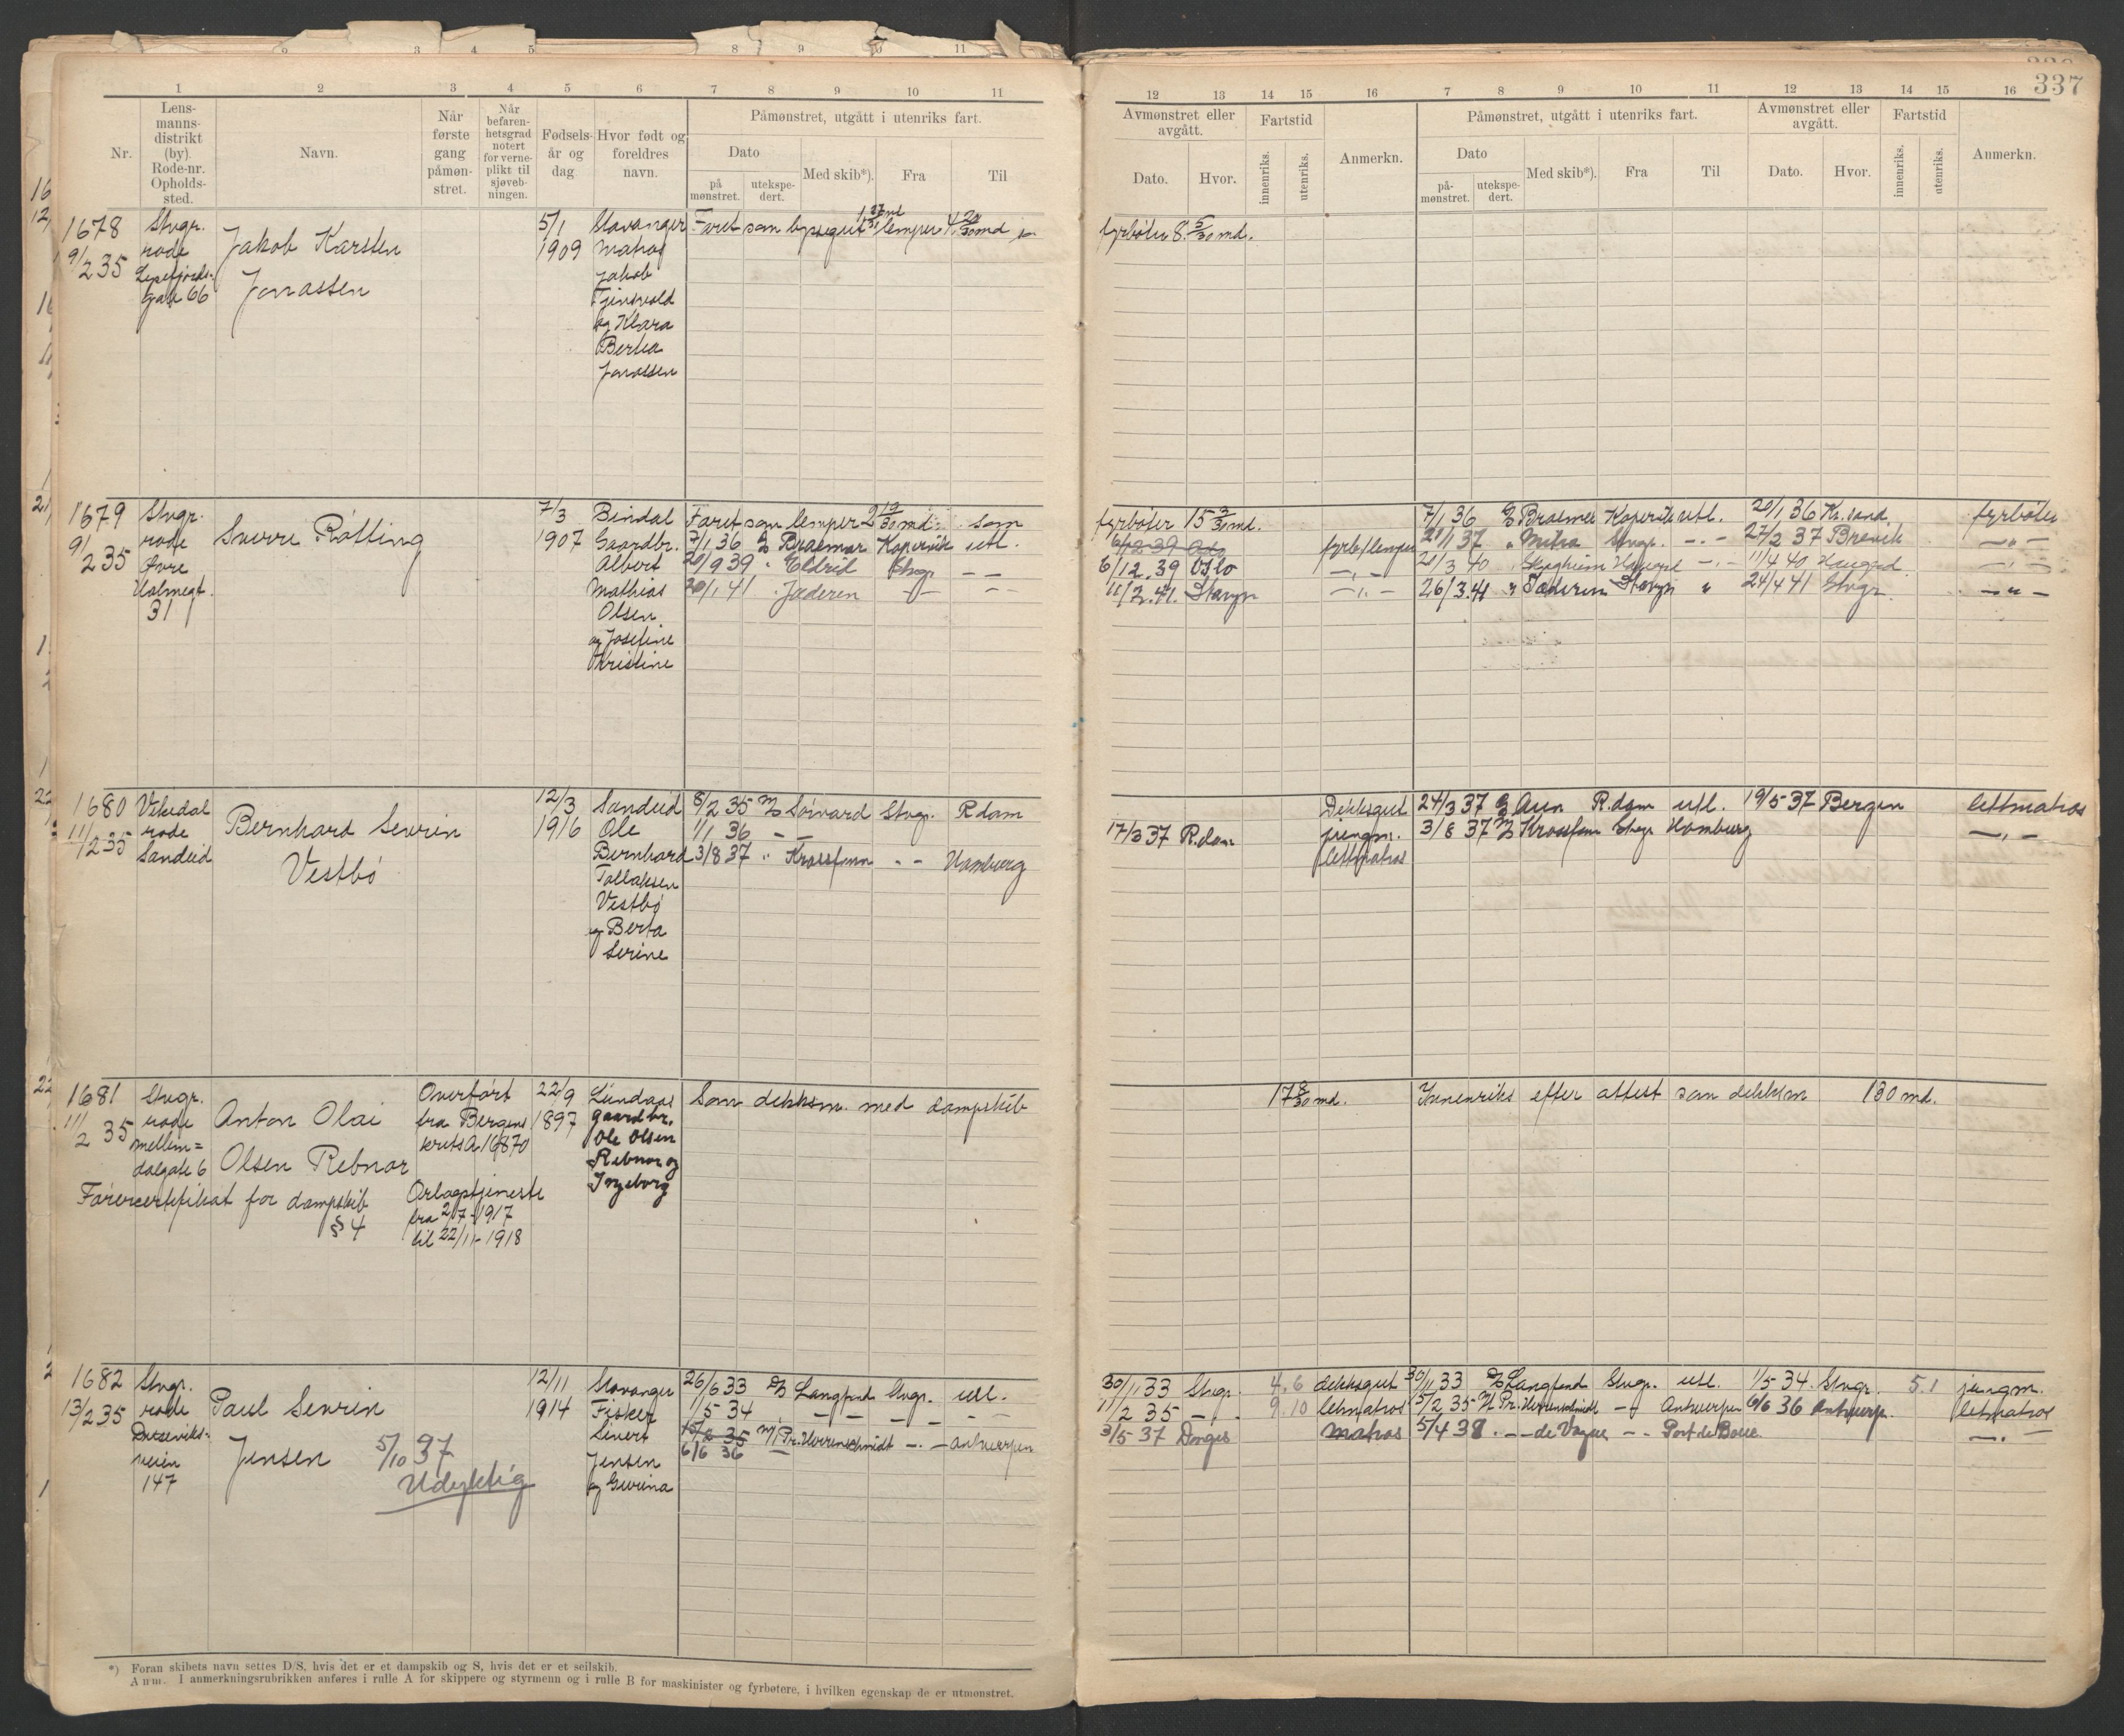 337
1 2 3 4 5 6 7 8 9 10 11
12 13 14 15 16 7 8 9 10 11 12 13 14 15 16
Nr.
Lens-
manns-
distrikt
(by).
Rode-nr.
Opholds-
sted.
Navn.
Når
første
gang
påmøn-
stret.
Når
befaren-
hetsgrad
notert
for verne-
plikt til
sjøveb-
ningen.
Fødsels-
år og
dag
Hvor født og
foreldres
navn.
Påmønstret, utgått i utenriks fart.
Dato
på
mønstret.
utekspe-
dert.
Med skib*).
Fra
Til
Avmønstret eller
avgått.
Dato.
Hvor.
Fartstid
innenriks.
utenriks.
Anmerkn.
Påmønstret, utgått i utenriks fart.
Dato
på-
mønstret.
utekspe-
dert.
Med skib*).
Fra
Til
Avmønstret eller
avgått.
Dato.
Hvor.
Fartstid
innenriks.
utenriks.
Anmerkn.
1678
9/2 35
Stvgr.
rode
Lysefjords-
gate 66
Jakob Karsten
Jonassen
5/1
1909
Stavanger
Matros
Jakob
Tjensvold
og Klara
Berta
Jonassen
Faret som lemper 4 20/30 md
fyrbøter 8. 5/30 md.
1679
9/2 35
Stvgr.
rode
Øvre
Holmegt.
31
Sverre Røtting
7/3
1907
Bindal
Gaardbr.
Albert
Mathias
Olsen
og Josefine
Kristine
Faret som lemper 2 md. som
7/1 36 D/S Braemar Kopervik utl.
20/9 39 " Eldrid Stvgr — —
20/1 41 " Jæderen — —
fyrbøter 15 md.
6/12 39 Oslo
11/2.41. Stavgr
fyrb/lemper
—"—
—"—
7/1 36 D/S Braemar Kopervik utl. 20/1 36 Kr.sand. fyrbøter
21/1 37 " Mitra Stvgr. —"— 27/2 37 Brevik —"—
21/3 40 Haugesd —"— 11/4 40 Haugesd. —"—
26/3.41 " Jæderen Stavgr " 24/4 41 Stvgr. —"—
1680
11/2 35
Vikedal
rode
Sandeid
Bernhard Sevrin
Vestbø
12/3
1916
Sandeid
Ole
Bernhard
Tollaksen
Vestbø
og Berta
Serine
8/2 35 M/S Sørvard Stvgr. R.dam
1/1 36 — —
3/8 37 " Krossfonn — — Hamburg
17/3 37 R.dam
Dekksgut
jungm.
lettmatros
24/3 37 D/S Aun R.dam utl. 19/5 37 Bergen lettmatros
3/8 37 M/S Krossfonn Stvgr Hamburg —"—
1681
11/2 35
Stvgr.
rode
Mellem=
dalgate 6
Anton Olai
Olsen Rebnor
Førercertifikat for dampskib
§ 4
Overført
fra Bergens
krets A 16870
Orlogstjeneste
fra 2/7-1917
til 22/11-1918
22/9
1897
Lindaas
gaardbr.
Ole Olsen
Rebnor og
Ingeborg
Som dekksm. med dampskib
17 8/30 md.
Innenriks efter attest som dekksm 130 md.
1682
13/2 35
Stvgr.
rode
Duseviks-
veien
147
Paul Sevrin
Jensen
5/10 37
Udyktig
12/11
1914
Stavanger
Fisker
Sivert
Jensen
og Severina
26/6 33 D/S Langfond Stvgr. utl.
1/5 34 — — — — — —
15/2 35 M/ —"— Antwerpen
6/6 36
30/11 33 Stvgr. 4.6 dekksgut
11/2 35 —"— 9.10 letmatros
3/5 37 Donges matros
30/11 33 D/S Langfond Stvgr. utl. 1/5 34. Stvgr. 5.1 jungm.
15/2 35 M/ — Antwerpen 6/6 36 Antwerp. letmatros
5/4 38 " —"— Port de Bouc —"—
*) Foran skibets navn settes D/S, hvis det er et dampskib og S, hvis det er et seilskib.
Anm. I anmerkningsrubrikken anføres i rulle A for skippere og styrmenn og i rulle B for maskinister og fyrbøtere, i hvilken egenskap de er utmønstret.